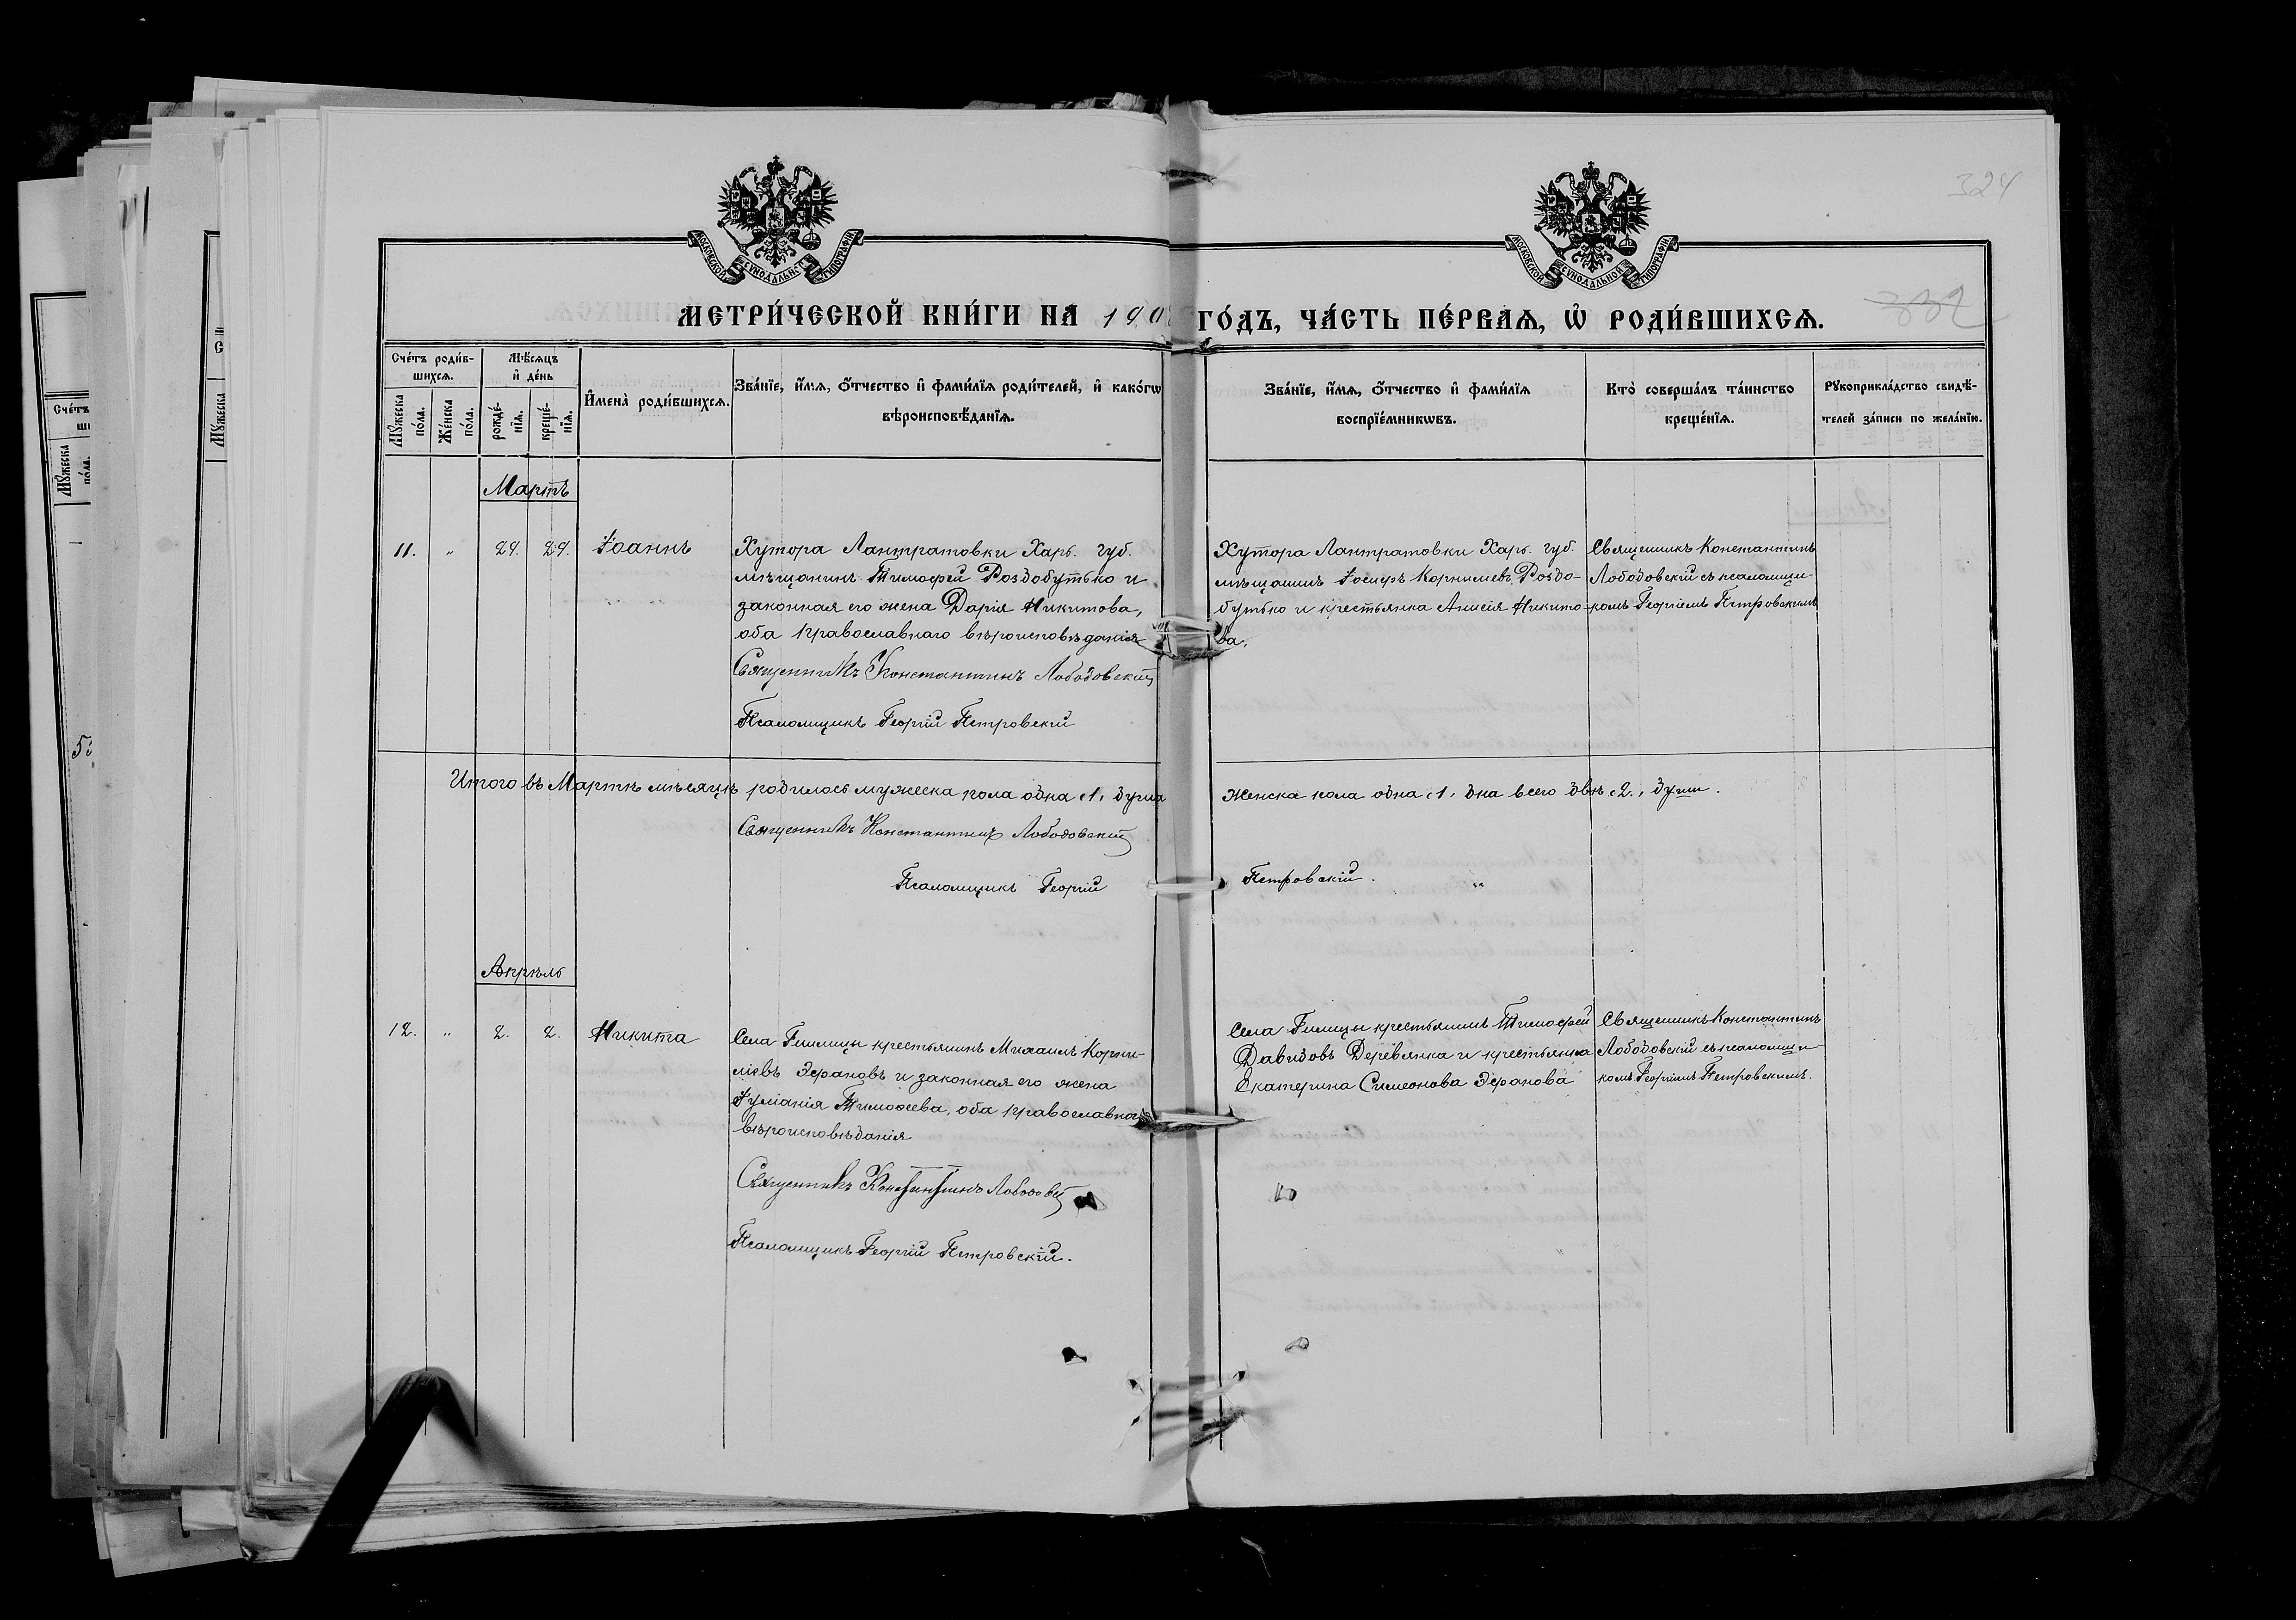 324
МОСКОВСКОЙ СУНОДАЛЬНОЙ ТИПОГРАФІИ
МОСКОВСКОЙ СУНОДАЛЬНОЙ ТИПОГРАФІИ
МЕТРИ́ЧЕСКОЙ КНИ́ГИ НА 190 ГО́ДЪ, ЧА́СТЬ ПЕ́РВАѦ, Ѡ҆ РОДИ́ВШИХСѦ.
332
Сче́тъ роди́в-
шихсѧ.
Мѣ́сѧцъ
и҆ де́нь
Мꙋ́жеска
по́ла.
Же́нска
по́ла.
рожде́-
нїѧ.
креще́-
нїѧ.
И҆мена̀ роди́вшихсѧ.
Зва́нїе, и҆́мѧ, ѻ҆́тчество и҆ фами́лїѧ роди́телей, и҆ како́гѡ
вѣроисповѣ́данїѧ.
Зва́нїе, и҆́мѧ, ѻ҆́тчество и҆ фами́лїѧ
воспрїе́мникѡвъ.
Кто̀ соверша́лъ та́инство
креще́нїѧ.
Рꙋкоприкла́дство свидѣ́-
телей за́писи по жела́нїю.
Мартъ
11. " 29. 29. Іоаннъ
Хутора Лантратовки Харь. губ.
мѣщанинъ Тимоѳей Роздобутько и
законная его жена Дарія Никитова,
оба православнаго вѣроисповѣданія
Священникъ Константинъ Лободовскій
Псаломщикъ Георгій Петровскій
Хутора Лантратовки Харь. губ.
мѣщанинъ Іосифъ Корнилиевъ Роздо-
бутько и крестьянка Анисія Никито-
ва.
Священникъ Константинъ
Лободовскій съ псаломщи-
комъ Георгіемъ Петровскимъ
Итого въ Мартѣ мѣсяцѣ родилось мужеска пола одна "1" душа Женска пола одна "1" д̃ша всего двѣ "2" души.
Священникъ Константинъ Лободовскій
Псаломщикъ Георгій Петровскій.
Апрѣль
12. " 2. 2. Никита
Села крестьянинъ Михаилъ Корни-
ліевъ Эфановъ и законная его жена
Іуліанія Тимоѳеева, оба православнаго
вѣроисповѣданія
Священникъ Константинъ Лободовскій
Псаломщикъ Георгій Петровскій.
Села крестьянинъ Тимоѳей
Давидовъ Деревянка и крестьянка
Екатерина Симеонова Эфанова
Священникъ Константинъ
Лободовскій съ псаломщи-
комъ Георгіемъ Петровскимъ.